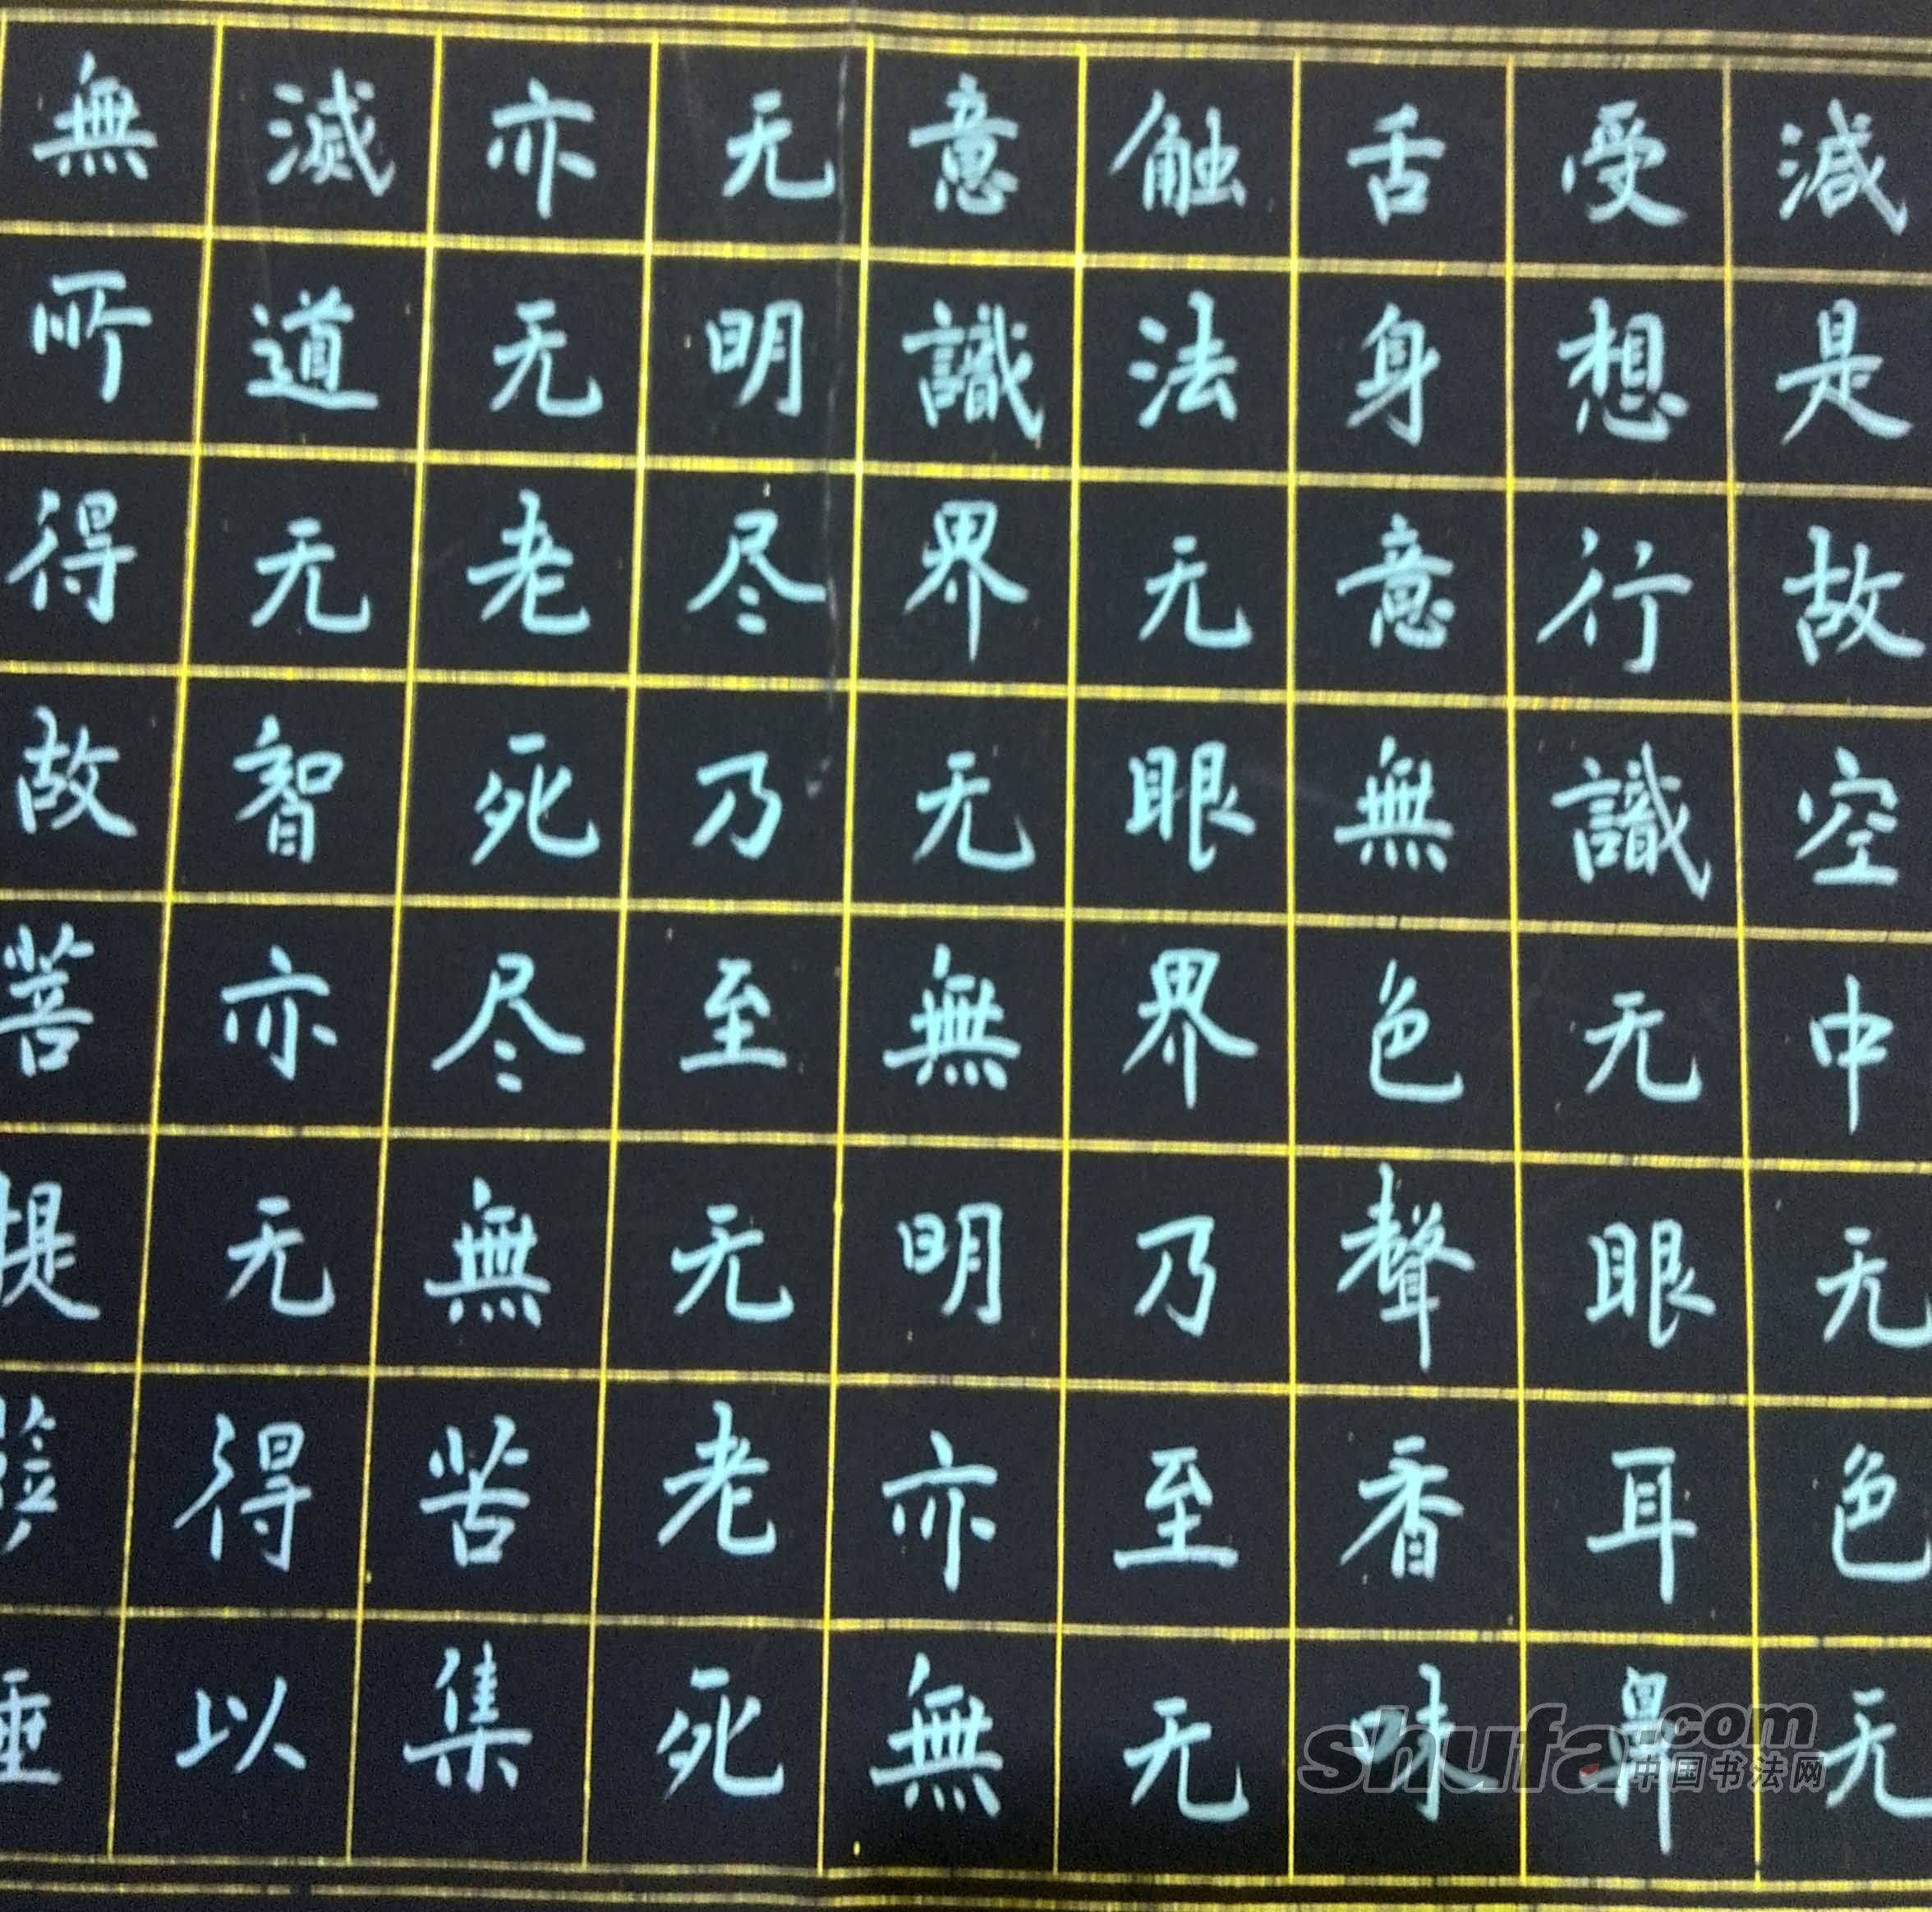 減是故空中无色无
受想行識无眼耳鼻
舌身意無色聲香味
触法无眼界乃至无
意識界无無明亦無
无明尽乃至无老死
亦无老死尽無苦集
滅道无智亦无得以
無所得故菩提薩埵
shufa.com
中国书法网